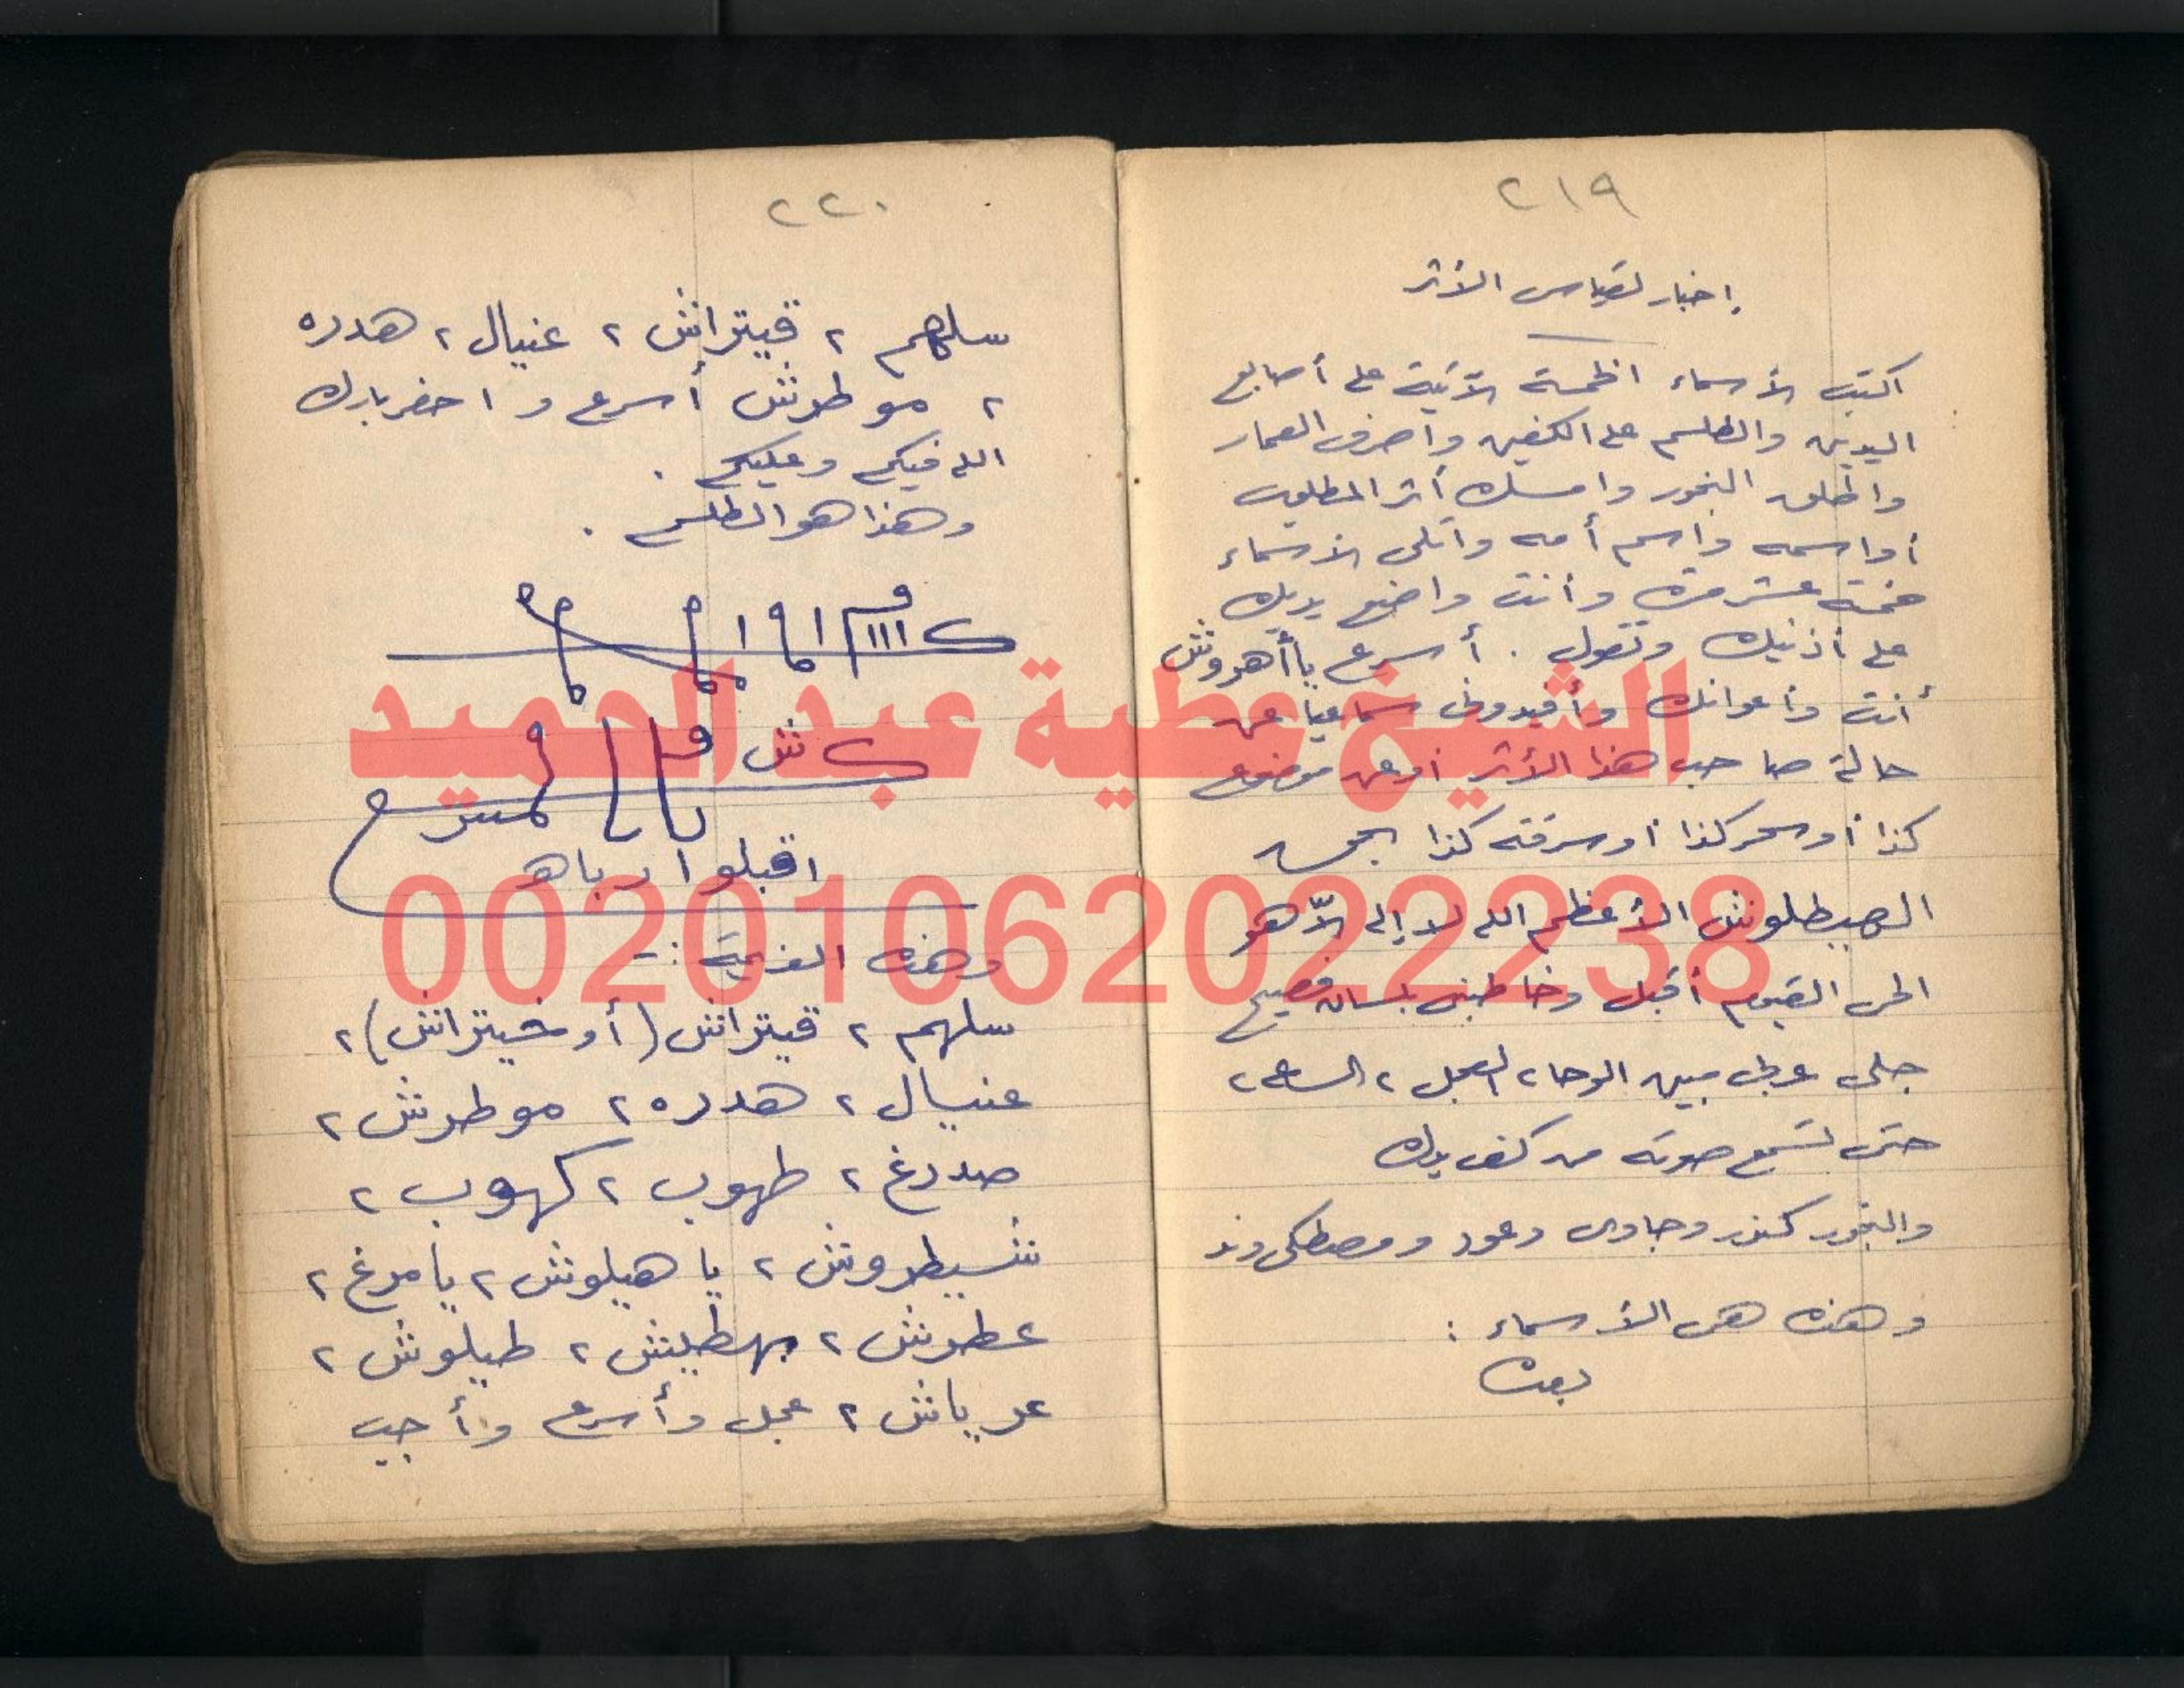 ٢١٩
إخبار لقياس الأثر
اكتب الأسماء الخمسة الآتية على أصابع
اليدين والطلسم على الكفين واصرف العمار
واطلق البخور وامسك أثر المطلوب
أو اسمه واسم أمه واتلى الأسماء
خمسة عشر مرة وأنت واضع يديك
على أذنيك وتقول . أسرع يا أهدوش
أنت وأعوانك وأفيدونى سماعيا عن
حالة صاحب هذا الأثر أو عن موضوع
كذا أو سحر كذا أو سرقة كذا بحق
الهيطلوش الأعظم الله لا إله إلاّ هو
الحى القيوم أقبل وخاطبنى بلسان فصيح
جلى عربى مبين الوحا ٢ العجل ٢ الساعة ٢
حتى تسمع صوته من كف يدك
والبخور كندر وجاوى وعود ومصطكى وند
وهذه هى الأسماء :
بعده
٢٢٠
سلهم ٢ قيتراش ٢ عنيال ٢ هدره
٢ موطوش أسرع واحضر بارك
الله فيكم وعليكم .
وهذا هو الطلسم .
اقبلوا
وهذه العزيمة :-
سلهم ٢ قيتراش (أو خيتراش) ٢
عنيال ٢ هدره ٢ موطوش ٢
صدرغ ٢ طهوب ٢ كهوب ٢
شيطروش ٢ يا هيلوش ٢ يا مرغ ٢
عطوش ٢ بهطيش ٢ طيلوش ٢
عرياش ٢ عجل وأسرع وأجب
الشيخ عطية عبد الحميد
00201062022238